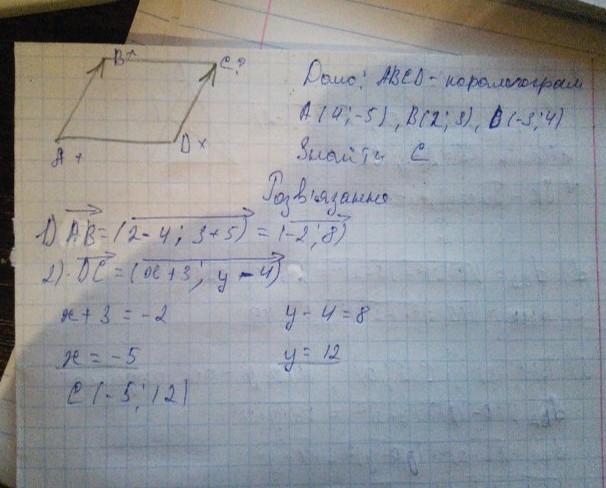 B+ C?
A+ D×
Дано: ABCD - паралелограм
A(4;-5), B(2;3), D(-3;4)
Знайти C
Розв'язання
1) AB = (2-4; 3+5) = (-2; 8)
2) DC = (x+3; y-4)
x+3=-2 y-4=8
x=-5 y=12
C(-5;12)